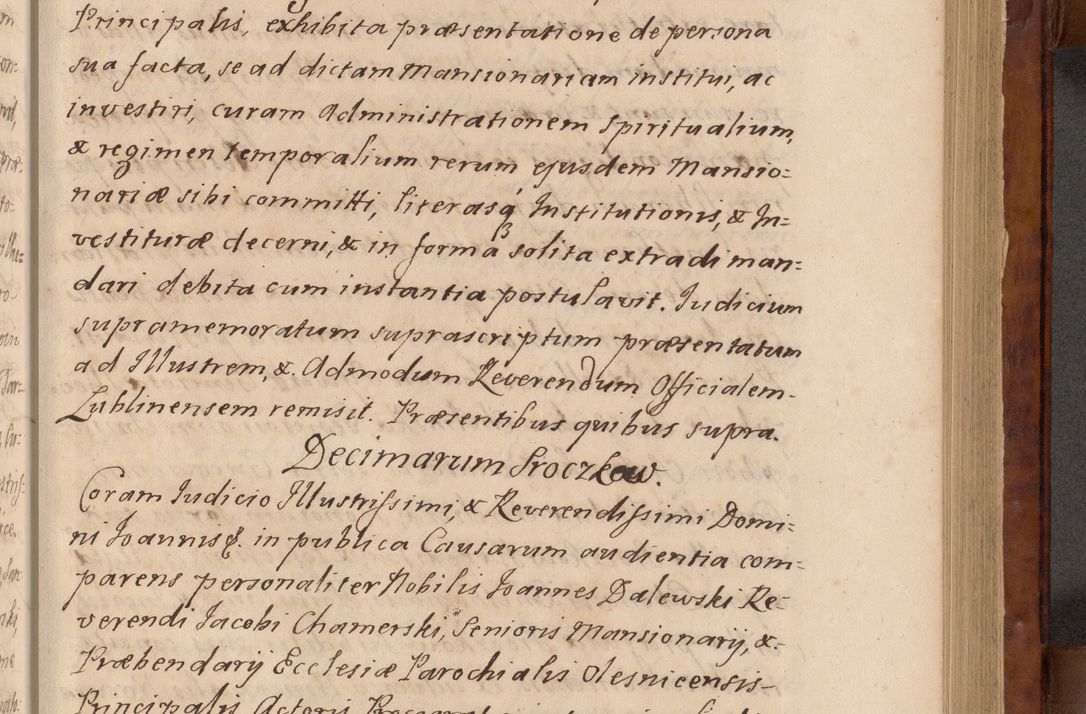 Principalis, exhibita præsentatione de persona
sua facta, se ad dictam Mansionariam institui, ac
investiri, curam Administrationem Spiritualium,
& regimen temporalium rerum ejusdem Mansio=
nariæ sibi committi, literasq́ꝫ Institutionis, & In=
vestituræ decerni, & in forma solita extradi man=
dari debita cum instantia postulavit. Iudicium
supramemoratum suprascriptum præsentatum
ad Illustrem, & Admodum Reverendum Officialem
Lublinensem remisit. Præsentibus quibus supra.
Decimarum Sroczkow.
Coram Iudicio Illustrissimi, & Reverendissimi Domi=
ni Ioannis &. in publica Causarum audientia com=
parens personaliter Nobilis Ioannes Dalewski Re=
verendi Iacobi Chamerski, Senioris Mansionarij, &
Præbendarij Ecclesiæ Parochialis Olesnicensis
Principalis Actoris